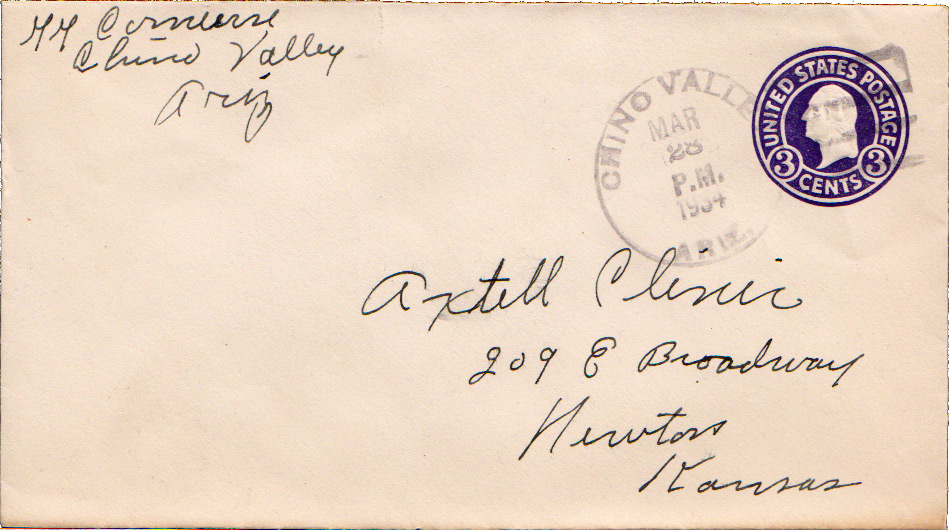 Chino Valley
Ariz
CHINO VALLE
MAR
28
P.M.
1934
ARIZ.
UNITED STATES POSTAGE
3 CENTS 3
Axtell Clinic
209 E Broadway
Newton
Kansas